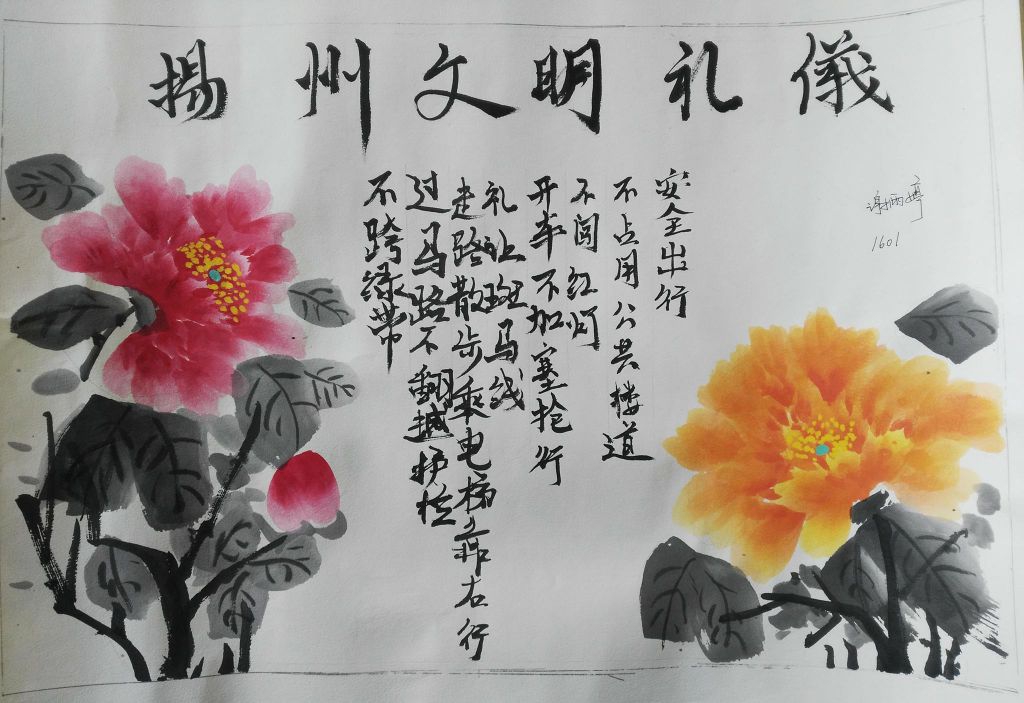 揚州文明礼儀
安全出行
不占用公共楼道
不闯红灯
开车不加塞抢行
礼让斑马线
走路散步乘电梯靠右行
过马路不翻越护栏
不跨绿带
谢
婷
1601